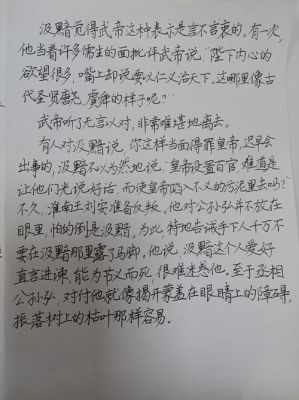 汲黯觉得武帝这种表示是言不宫衷的。有一次,
他当着许多儒生的面批评武帝说“陛下内心的
欲望很多,嘴上却说要以仁义治天下,这哪里像古
代圣贤唐尧、虞舜的样子呢?
武帝听了无言以对,非常难堪地离去。
有人对汲黯说,你这样当面得罪皇帝,迟早会
出事的,汲黯不以为然地说:“皇帝设置百官,难道是
让他们光说好话,而使皇帝陷入不义的污泥里去吗?
不久,淮南王刘安准备反叛。他对公孙弘并不放在
眼里,怕的倒是汲黯。为此,特地告诫手下人千万不
要在汲黯那里露了马脚。他说,汲黯这个人爱好
直言进谏,能为节义而死,很难迷惑他。至于丞相
公孙弘,对付他就像揭开蒙盖在眼睛上的障碍,
振落树上的枯叶那样容易。